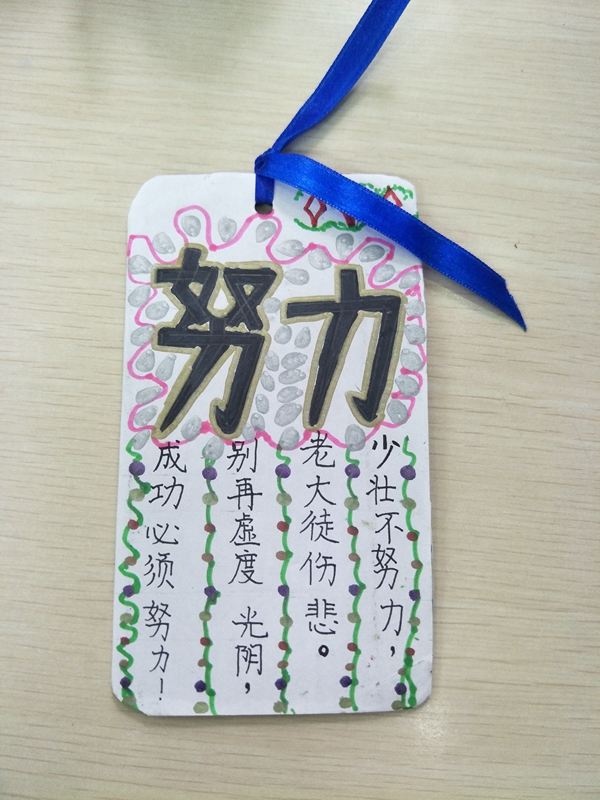 努力
少壮不努力，
老大徒伤悲。
别再虚度光阴，
成功必须努力！